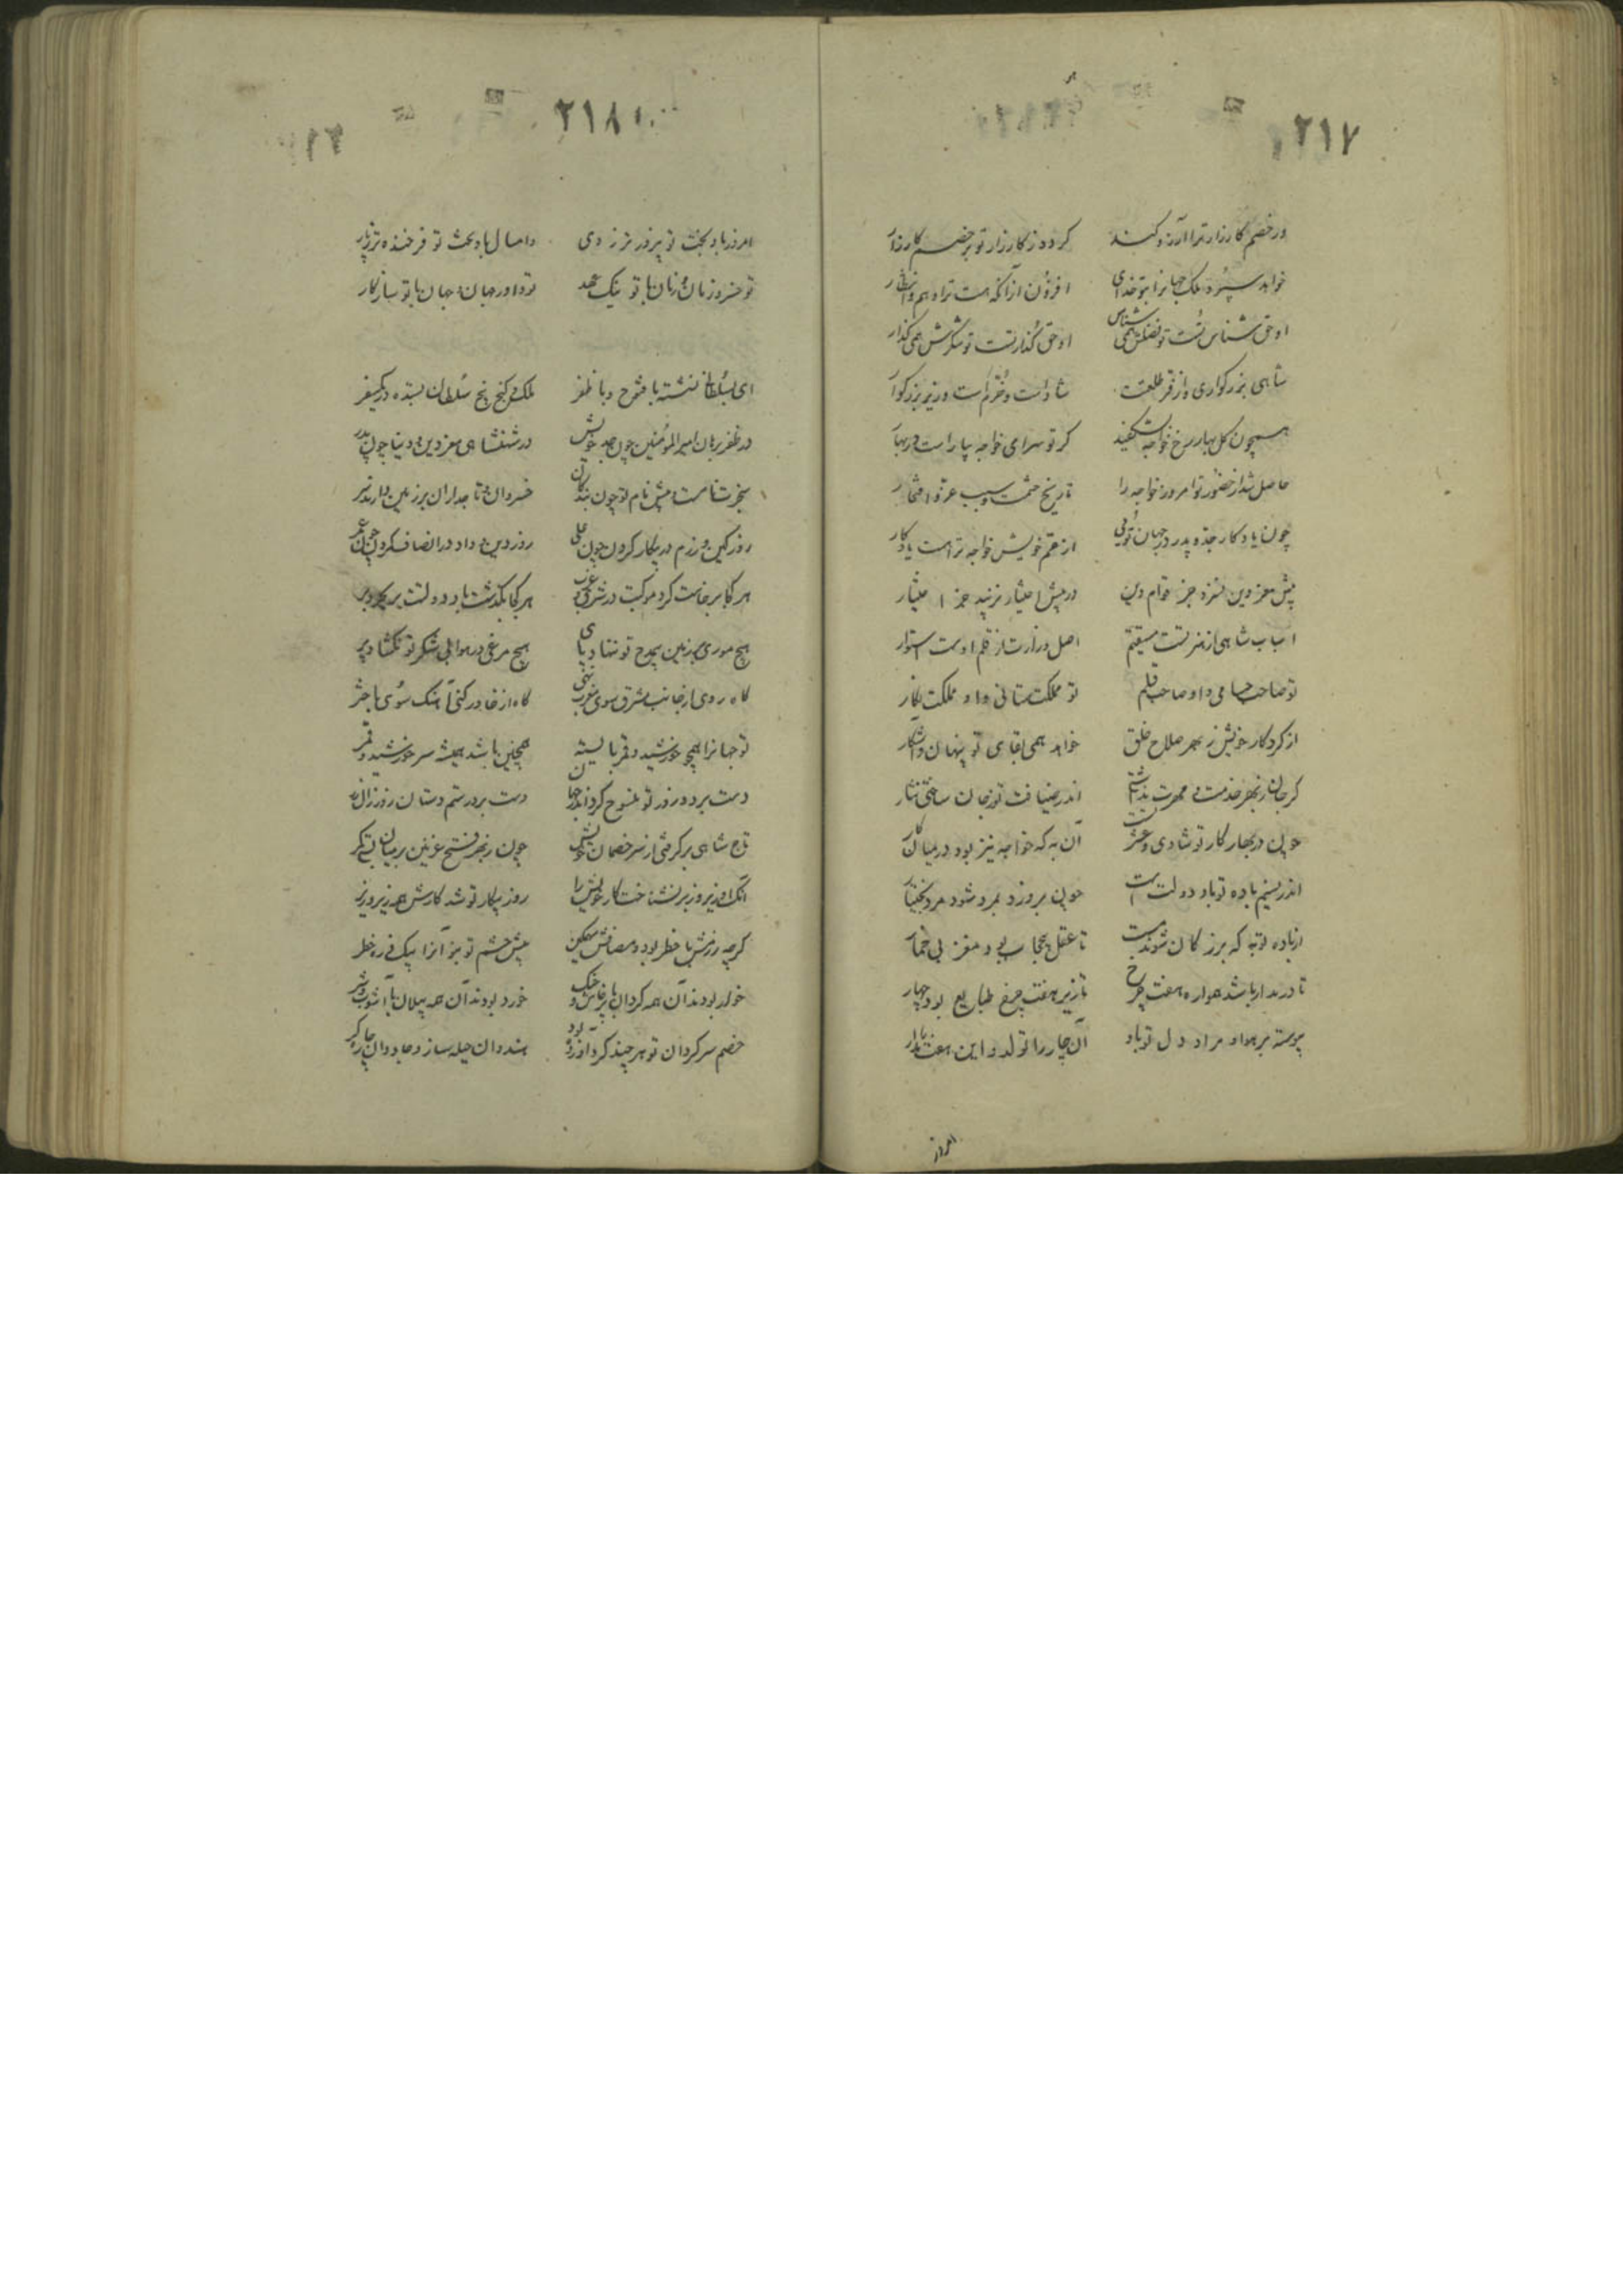 ۲۱۷
ور خصم کارزار ترا آرزو کند گردد ز کارزار تو بر خصم کار زار
خواهد سپرد ملک جهانرا بتو خدای افزون از آنکه هست ترا وهم و انتظار
او حق شناس تست تو فضلش همی شناس او حق گذار تست تو شکرش همی گذار
شاهی بزرگواری و از فر طلعتت شادست و خرم است وزیر بزرگوار
همچون گل بهار رخ خواجه بشکفید کز تو سرای خواجه بیاراست در بهار
حاصل شد از حضور تو امروز خواجه را تاریخ حشمت و سبب عز و افتخار
چون یادگار جد و پدر در جهان توئی از عم خویش خواجه ترا هست یادگار
پیش معز دین نسزد جز قوام دین در پیش اختیار نزیبد جز اختیار
اسباب شاهی از هنر تست مستقیم اصل وزارت از قلم اوست استوار
تو صاحب حسامی و او صاحب قلم تو مملکت ستانی و او مملکت نگار
از کردگار خویش ز بهر صلاح خلق خواهد همی بقای تو پنهان و آشکار
گر جان ز بهر خدمت و مهرت نداشتی اندر ضیافت تو ز جان ساختی نثار
چون در بهار کار تو شادی و عشرتست آن به که خواجه نیز بود در میان کار
اندر نسیم باده تو باد دولت است چون بر وزد بمرد شود مرد بختیار
از باده تو به که بزرگان شوند مست تا عقل بی حجاب بود مغز بی خمار
تا در مدار باشد همواره هفت چرخ تا زیر هفت چرخ طبایع بود چهار
پیوسته بر هوا و مراد دل تو باد آن چار را تولد و این هفت را مدار
امروز
۲۱۸
امروز باد بخت تو پیروزتر ز دی و امسال باد بخت تو فرخنده تر ز پار
تو خسرو زمان و زمان با تو نیک عهد تو داور جهان و جهان با تو سازگار
ای بسلطانی نشسته با فتوح و با ظفر ملک و گنج پنج سلطان بستده در یک سفر
در ظفر برهان امیرالمؤمنین چون جد خویش در شهنشاهی معز دین و دنیا چون پدر
سنجرت نامست و پیش نام تو چون بندگان خسروان و تاجداران بر زمین دارند سر
روز کین و رزم در پیکار کردن چون علی روز دین و داد در انصاف کردن چون عمر
هر کجا برخاست گرد موکبت در شرق و غرب هر کجا بگذشت باد دولتت بر بحر و بر
هیچ موری بر زمین بی مدح تو ننهاد پای هیچ مرغی در هوا بی شکر تو نگشاد پر
گاه روی از جانب مشرق سوی مغرب نهی گاه از خاور کنی آهنگ سوی باختر
تو جهانرا همچو خورشید و قمر بایسته همچنین باشد همیشه سیر خورشید و قمر
دست برد و زور تو منسوخ کرد اندر جهان دست برد رستم دستان و زور زال زر
تاج شاهی بر گرفتی از سر خصمان خویش چون ز بهر فتح غزنین بر میان بستی کمر
آنک او زیر و زبر نشناخت کار خویش را روز پیکار تو شد کارش همه زیر و زبر
گرچه رزمش با خطر بود و مصافش سهمگین پیش چشم تو نبود آنرا بیک ذره خطر
خوار بودند آن همه گردان با پرخاش و جنگ خورد بودند آن همه پیلان با آشوب و شر
خصم سرگردان تو هر چند گرد آورده بود هندوان حیله ساز و جادوان چاره گر